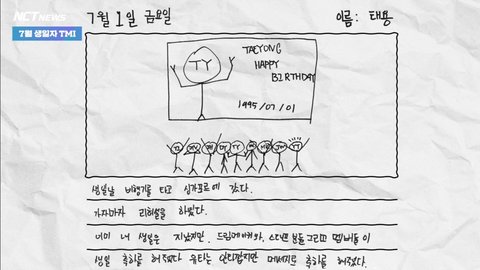 NCT NEWS
7월 생일자 TMI
7월 1일 금요일
이름: 태용
TY
TAEYONG
HAPPY
BIRTHDAY
1995/07/01
생일날 비행기를 타고 싱가포르에 갔다.
가자마자 리허설을 하였다.
이미 내 생일은 지났지만, 드림메이커와, 스태프 분들 그리고 멤버들이
생일 축하를 해주었다. 유타는 안타깝지만 메세지로 축하를 해주었다.